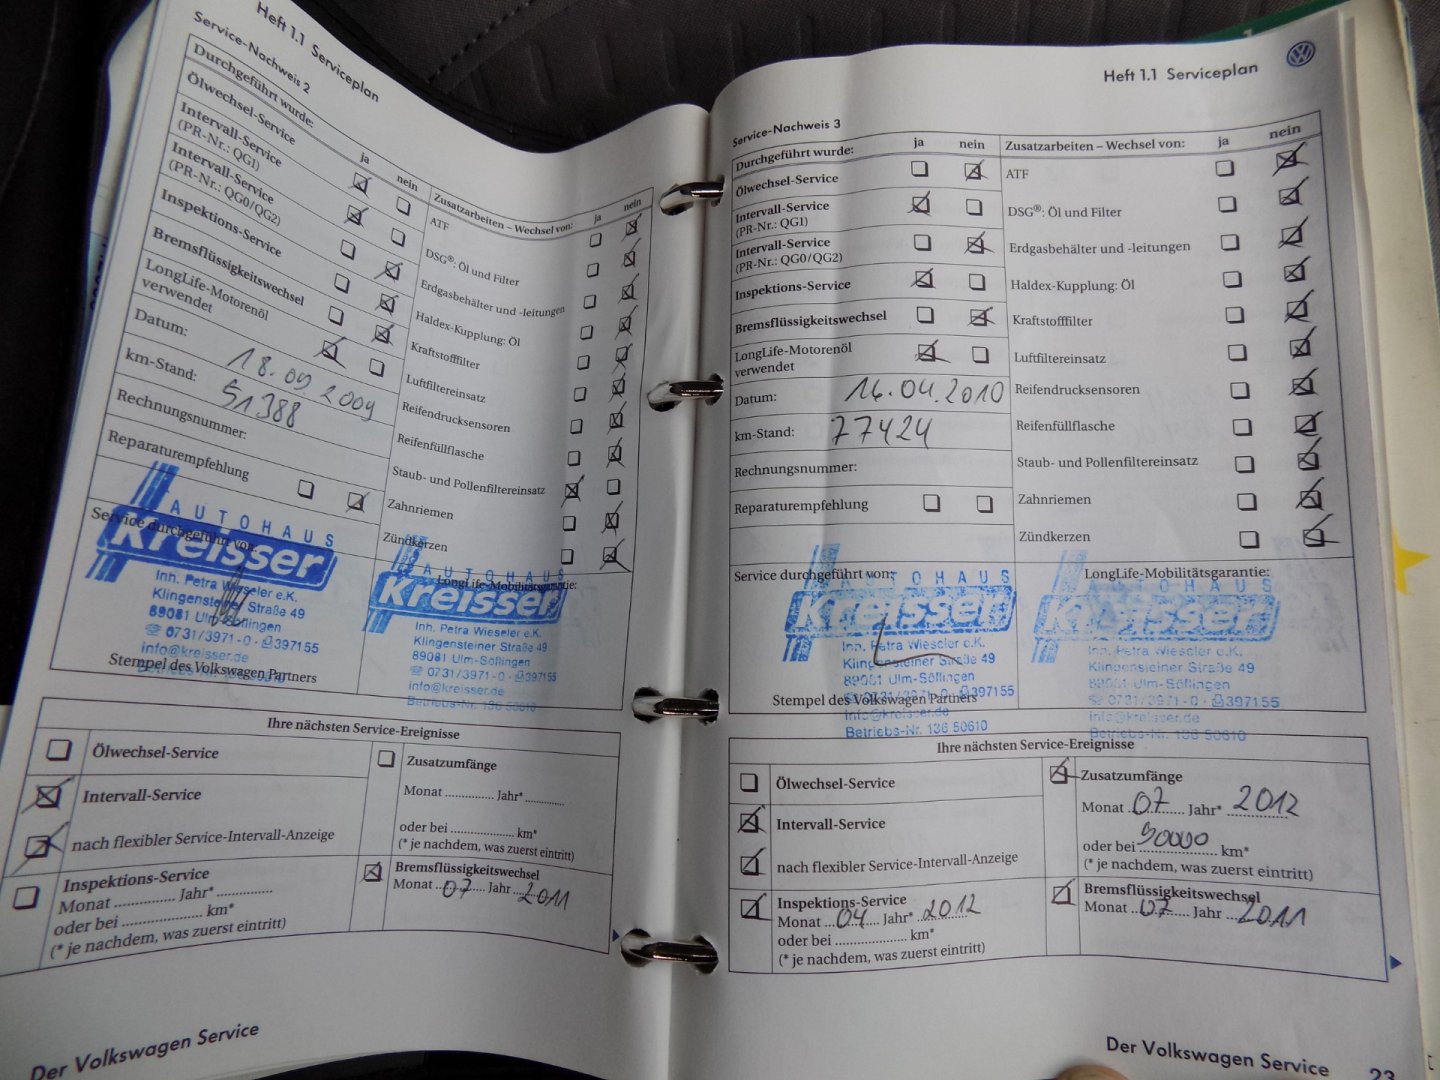 Heft 1.1 Serviceplan
Service-Nachweis 2
Durchgeführt wurde:
ja
nein
Ölwechsel-Service
Intervall-Service
(PR-Nr.: QG1)
Intervall-Service
(PR-Nr.: QG0/QG2)
Inspektions-Service
Bremsflüssigkeitswechsel
LongLife-Motorenöl
verwendet
Datum: 18.09 2009
km-Stand: 51388
Rechnungsnummer:
Reparaturempfehlung
Zusatzarbeiten – Wechsel von:
ja
nein
ATF
DSG®: Öl und Filter
Erdgasbehälter und -leitungen
Haldex-Kupplung: Öl
Kraftstofffilter
Luftfiltereinsatz
Reifendrucksensoren
Reifenfüllflasche
Staub- und Pollenfiltereinsatz
Zahnriemen
Zündkerzen
Service durchgeführt von:
AUTOHAUS
Kreisser
Inh. Petra Wieseler e.K.
Klingensteiner Straße 49
89081 Ulm-Söflingen
☎ 0731/3971-0 · 397155
info@kreisser.de
Stempel des Volkswagen Partners
LongLife-Mobilitätsgarantie:
AUTOHAUS
Kreisser
Inh. Petra Wieseler e.K.
Klingensteiner Straße 49
89081 Ulm-Söflingen
☎ 0731/3971-0 · 397155
info@kreisser.de
Betriebs-Nr. 136 50610
Ihre nächsten Service-Ereignisse
Ölwechsel-Service
Intervall-Service
nach flexibler Service-Intervall-Anzeige
Inspektions-Service
Monat .............. Jahr* ..............
oder bei .................... km*
(* je nachdem, was zuerst eintritt)
Zusatzumfänge
Monat .............. Jahr* ..............
oder bei .................... km*
(* je nachdem, was zuerst eintritt)
Bremsflüssigkeitswechsel
Monat 07 Jahr 2011
Der Volkswagen Service
Heft 1.1 Serviceplan
Service-Nachweis 3
Durchgeführt wurde:
ja
nein
Ölwechsel-Service
Intervall-Service
(PR-Nr.: QG1)
Intervall-Service
(PR-Nr.: QG0/QG2)
Inspektions-Service
Bremsflüssigkeitswechsel
LongLife-Motorenöl
verwendet
Datum: 16.04.2010
km-Stand: 77424
Rechnungsnummer:
Reparaturempfehlung
Zusatzarbeiten – Wechsel von:
ja
nein
ATF
DSG®: Öl und Filter
Erdgasbehälter und -leitungen
Haldex-Kupplung: Öl
Kraftstofffilter
Luftfiltereinsatz
Reifendrucksensoren
Reifenfüllflasche
Staub- und Pollenfiltereinsatz
Zahnriemen
Zündkerzen
Service durchgeführt von:
AUTOHAUS
Kreisser
Inh. Petra Wieseler e.K.
Klingensteiner Straße 49
89081 Ulm-Söflingen
☎ 0731/3971-0 · 397155
Stempel des Volkswagen Partners
info@kreisser.de
Betriebs-Nr. 136 50610
LongLife-Mobilitätsgarantie:
AUTOHAUS
Kreisser
Inh. Petra Wieseler e.K.
Klingensteiner Straße 49
89081 Ulm-Söflingen
☎ 0731/3971-0 · 397155
info@kreisser.de
Betriebs-Nr. 136 50610
Ihre nächsten Service-Ereignisse
Ölwechsel-Service
Intervall-Service
nach flexibler Service-Intervall-Anzeige
Inspektions-Service
Monat 04 Jahr* 2012
oder bei .................... km*
(* je nachdem, was zuerst eintritt)
Zusatzumfänge
Monat 07 Jahr* 2012
oder bei 90000 km*
(* je nachdem, was zuerst eintritt)
Bremsflüssigkeitswechsel
Monat 07 Jahr 2011
Der Volkswagen Service
23